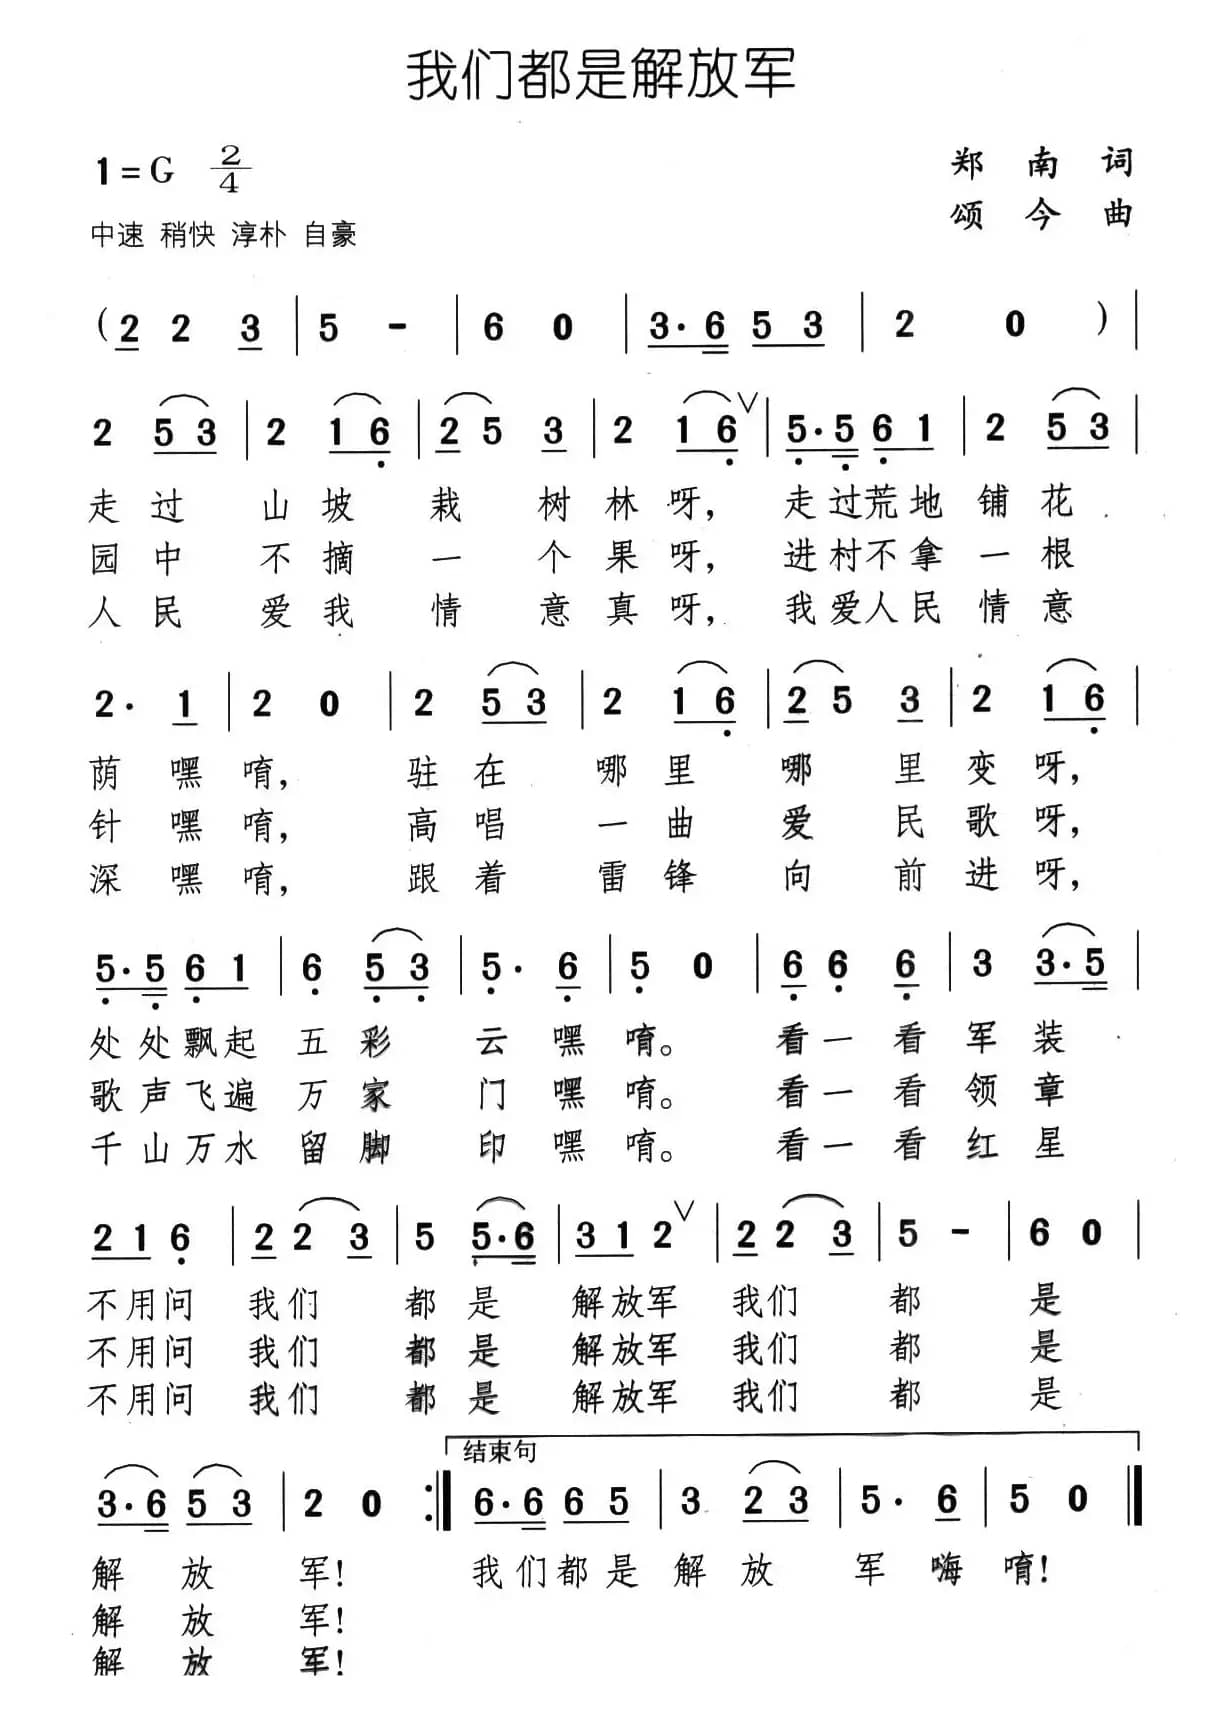 我们都是解放军
1=G 2/4
郑 南 词
颂 今 曲
中速 稍快 淳朴 自豪
( 2 2 3 | 5 - | 6 0 | 3·6 5 3 | 2 0 ) |
2 5 3 | 2 1 6 | 2 5 3 | 2 1 6 ∨ | 5·5 6 1 | 2 5 3 |
走 过 山 坡 栽 树 林 呀， 走 过 荒 地 铺 花
园 中 不 摘 一 个 果 呀， 进 村 不 拿 一 根
人 民 爱 我 情 意 真 呀， 我 爱 人 民 情 意
2· 1 | 2 0 | 2 5 3 | 2 1 6 | 2 5 3 | 2 1 6 |
荫 嘿 唷， 驻 在 哪 里 哪 里 变 呀，
针 嘿 唷， 高 唱 一 曲 爱 民 歌 呀，
深 嘿 唷， 跟 着 雷 锋 向 前 进 呀，
5·5 6 1 | 6 5 3 | 5· 6 | 5 0 | 6 6 6 | 3 3·5 |
处 处 飘 起 五 彩 云 嘿 唷。 看 一 看 军 装
歌 声 飞 遍 万 家 门 嘿 唷。 看 一 看 领 章
千 山 万 水 留 脚 印 嘿 唷。 看 一 看 红 星
2 1 6 | 2 2 3 | 5 5·6 | 3 1 2 ∨ | 2 2 3 | 5 - | 6 0 |
不 用 问 我 们 都 是 解 放 军 我 们 都 是
不 用 问 我 们 都 是 解 放 军 我 们 都 是
不 用 问 我 们 都 是 解 放 军 我 们 都 是
结束句
3·6 5 3 | 2 0 :‖ 6·6 6 5 | 3 2 3 | 5· 6 | 5 0 ‖
解 放 军！ 我 们 都 是 解 放 军 嗨 唷！
解 放 军！
解 放 军！